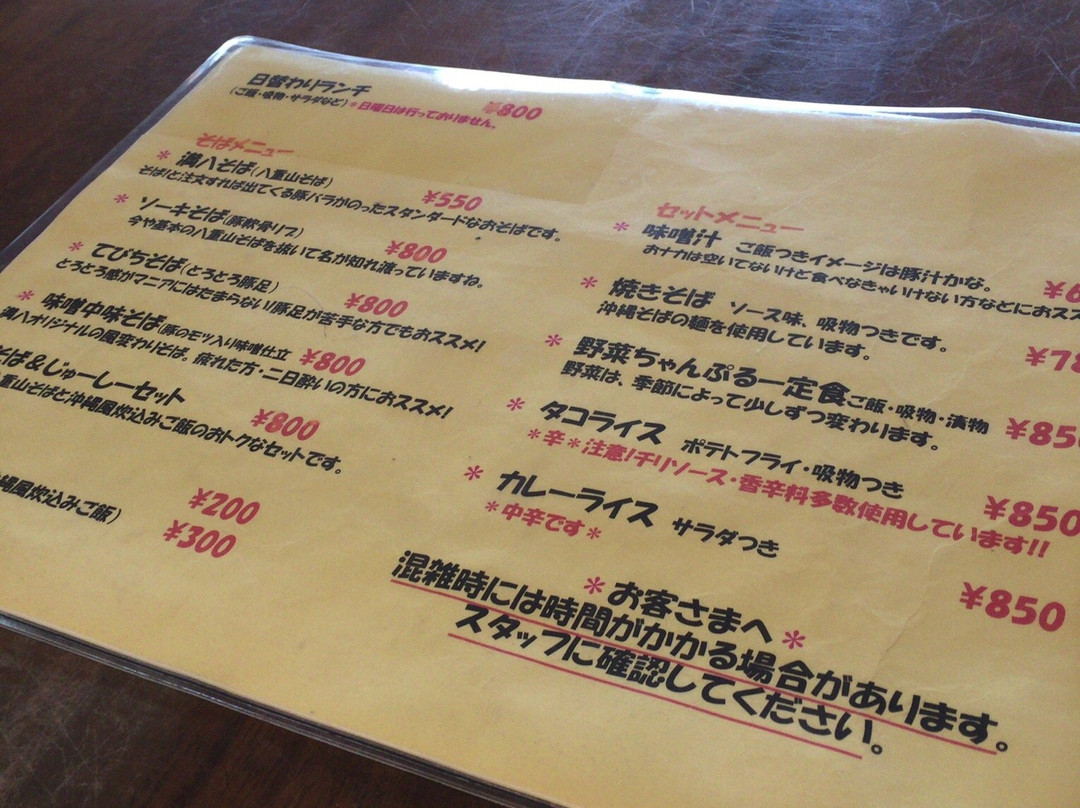 日替わりランチ
(ご飯・吸物・サラダなど)*日曜日は行っておりません。
¥800
そばメニュー
*満八そば(八重山そば)
¥550
そば!と注文すれば出てくる豚バラがのったスタンダードなおそばです。
*ソーキそば(豚軟骨リブ)
¥800
今や基本の八重山そばを抜いて名が知れ渡っていますね。
*てびちそば(とろとろ豚足)
¥800
とろとろ感がマニアにはたまらない!豚足が苦手な方でもおススメ!
*味噌中味そば(豚のモツ入り味噌仕立
¥800
満八オリジナルの風変わりそば。疲れた方・二日酔いの方におススメ!
そば&じゅーしーセット
¥800
重山そばと沖縄風炊込みご飯のおトクなセットです。
縄風炊込みご飯)
¥200
¥300
セットメニュー
*味噌汁 ご飯つきイメージは豚汁かな。
おナカは空いてないけど食べなきゃいけない方などにおスス
*焼きそば ソース味、吸物つきです。
沖縄そばの麺を使用しています。
¥78
*野菜ちゃんぷる一定食ご飯・吸物・漬物
野菜は、季節によって少しずつ変わります。
¥850
*タコライス ポテトフライ・吸物つき
*辛*注意!チリソース・香辛料多数使用しています!!
¥850
*カレーライス サラダつき
*中辛です*
¥850
*お客さまへ*
混雑時には時間がかかる場合があります。
スタッフに確認してください。